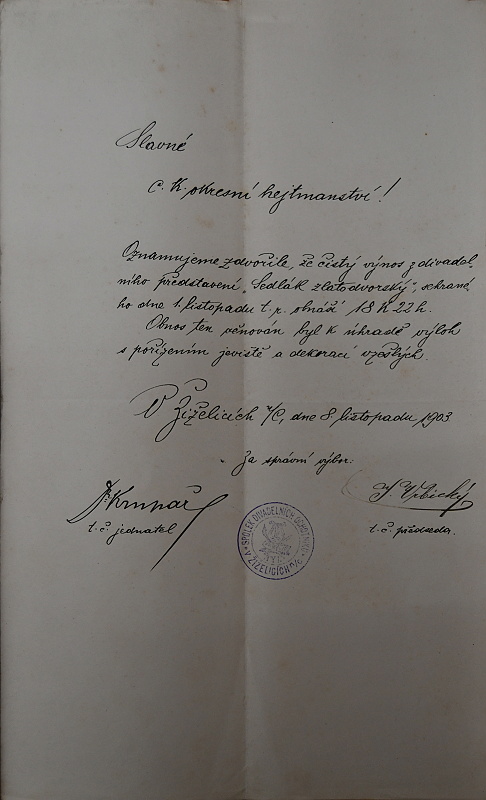 Slavné
c. k. okresní hejtmanství!
Oznamujeme zdvořile, že čistý výnos z divadel-
ního představení „Sedlák zlatodvorský“, sehrané
ho dne 1. listopadu t. r. obnáší 18 K 22 h.
Obnos ten věnován byl k úhradě výloh
s pořízením jeviště a dekorací vzešlých.
V Žiželicích n/C, dne 8 listopadu 1903
Za správní výbor:
Krupař
J. Vrbický
t. č. jednatel
t. č. předseda.
SPOLEK DIVADELNÍCH OCHOTNÍKŮ
V ŽIŽELICÍCH n/C